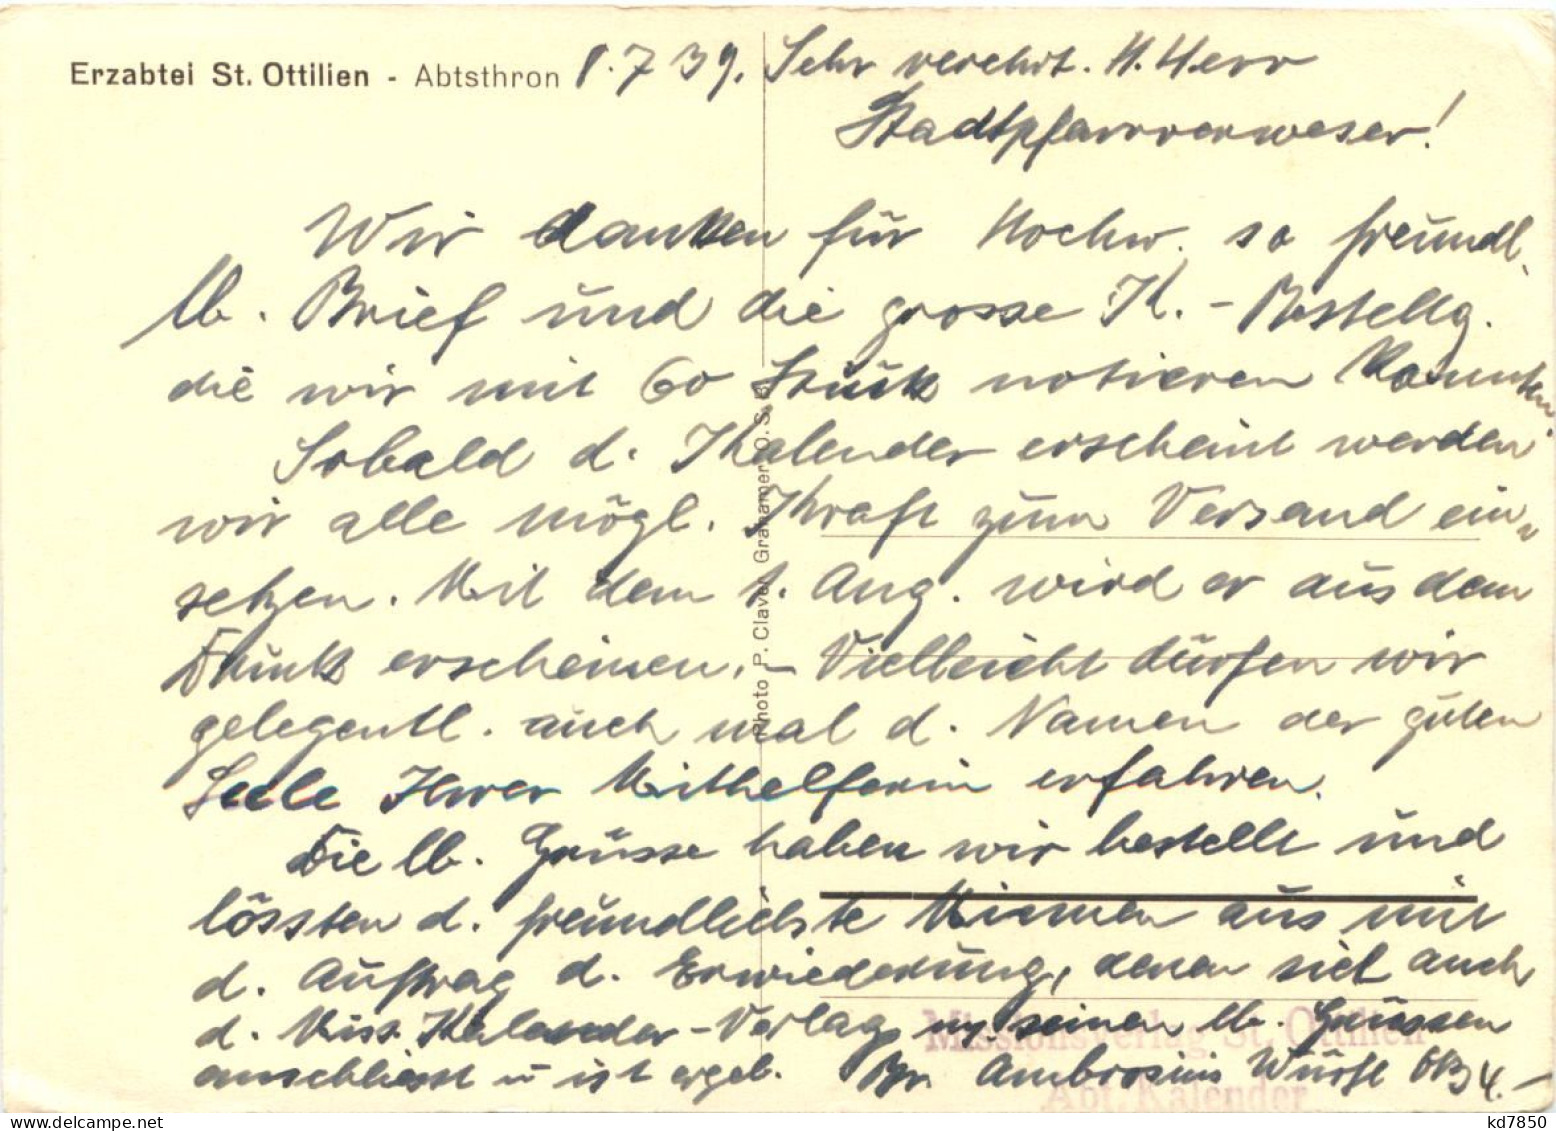 Erzabtei St. Ottilien - Abtsthron 1.7 39. Sehr verehrt. H. Herr
Stadtpfarrverweser!
Wir danken für Hochw. so freundl.
lb. Brief und die grosse K. - Bestellg.
die wir mit 60 Stück notieren konnten.
Sobald d. Kalender erscheint werden
wir alle mögl. Kraft zum Versand ein-
setzen. Mit dem 1. Aug. wird er aus dem
Druck erscheinen. - Vielleicht dürfen wir
gelegentl. auch mal d. Namen der guten
Seele Ihrer Mithelferin erfahren.
Die lb. Grüsse haben wir bestellt und
lössten d. freundlichste Mienen aus mit
d. Auftrag d. Erwiederung, denen sich auch
d. Miss. Kalender-Verlag seinen lb. Grüssen
anschliesst u ist ergeb. Br. Ambrosius Würfl
Photo P. Claver Grahamer O.S.B.
Missionsverlag St. Ottilien
Abt. Kalender
kd7850